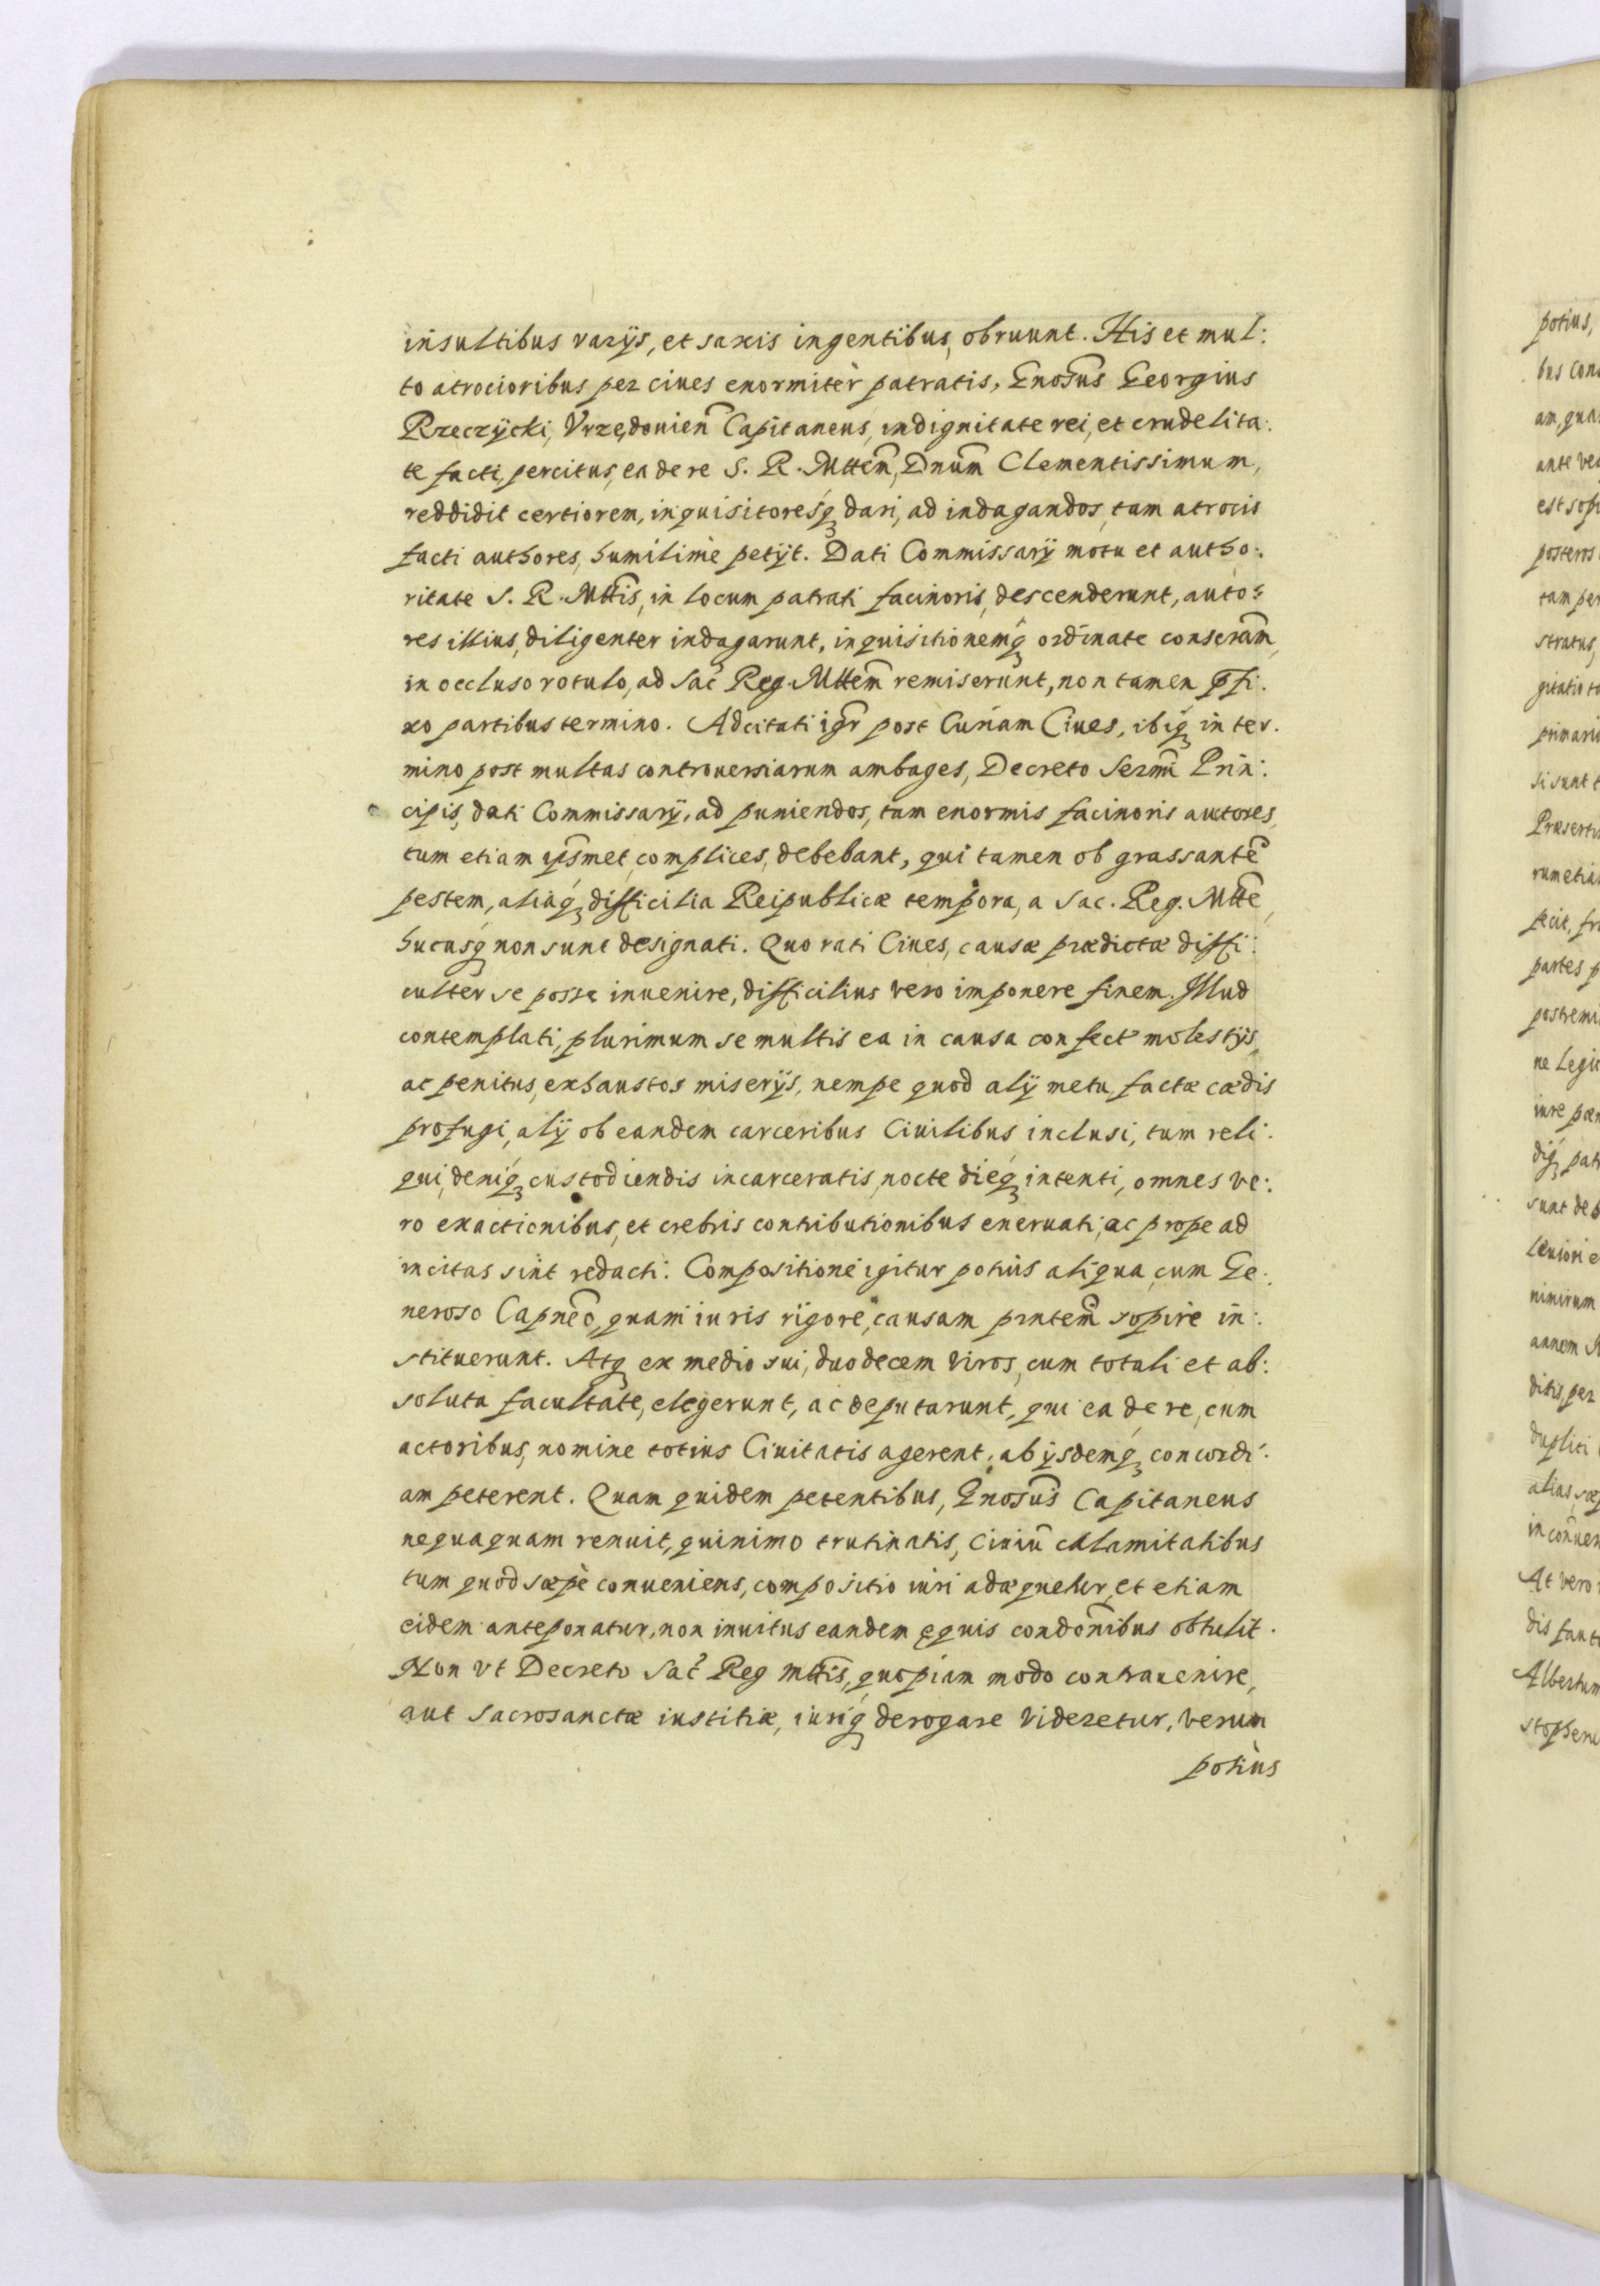 insultibus varijs, et saxis ingentibus, obruunt. His et mul:
to atrocioribus per ciues enormitèr patratis, Gnosus Georgius
Rzeczÿcki, Vrzędouien Capitaneus, indignitate rei, et crudelita:
te facti, percitus, ea de re S. R. Mttem, Dnum Clementissimum,
reddidit certiorem, inquisitoresq dari, ad indagandos, tam atrocis
facti authores, humilimè petijt. Dati Commissarÿ motu et autho:
ritate S. R. Mttis, in locum patrati facinoris, descenderunt, auto:
res illius, diligenter indagarunt, inquisitionemq ordinate conseram,
in occluso rotulo, ad Sac Reg Mttem remiserunt, non tamen pfi:
xo partibus termino. Adcitati igr post Curiam Ciues, ibiq in ter:
mino post multas controuersiarum ambages, Decreto Sermi Prin:
cipis, dati Commissarÿ, ad puniendos, tam enormis facinoris auctores,
tum etiam ipsmet complices, debebant, qui tamen ob grassante
pestem, aliaq, difficilia Reipublicæ tempora, a Sac. Reg. Mtte,
hucusq non sunt designati. Quo rati Ciues, causæ prædictæ diffi:
culter se posse inuenire, difficilius vero imponere finem. Illud
contemplati, plurimum se multis ea in causa confect molestijs,
ac penitus, exhaustos miserijs, nempe quod alij metu, factæ cædis
profugi, alij ob eandem carceribus Ciuilibus inclusi, tum reli:
qui, deniq custodiendis incarceratis, nocte dieq intenti, omnes ve:
ro exactionibus, et crebris contributionibus eneruati, ac prope ad
incitas sint redacti. Compositione igitur potius aliqua, cum Ge:
neroso Capneo, quam iuris rigore, causam prntem sopire in:
stituerunt. Atq ex medio sui, duodecem viros, cum totali et ab:
soluta facultate, elegerunt, ac deputarunt, qui ea de re, cum
actoribus, nomine totius Ciuitatis agerent, ab ijsdemq concordi:
am peterent. Quam quidem petentibus, Gnosus Capitaneus
nequaquam renuit, quinimo trutinatis, Ciuiu calamitatibus
tum quod sæpè conueniens, compositio iuri adæquetur, et etiam
eidem anteponatur, non inuitus eandem ęquis condonibus obtulit.
Non vt Decreto Sac Reg mttis, quopiam modo contrauenire,
aut Sacrosanctæ iustitiæ, iuriq derogare videretur, verum
potiùs
potius,
ante
posteros
tam
stratus,
si sunt
fecit,
partes
ne
At vero
dis
Albertum